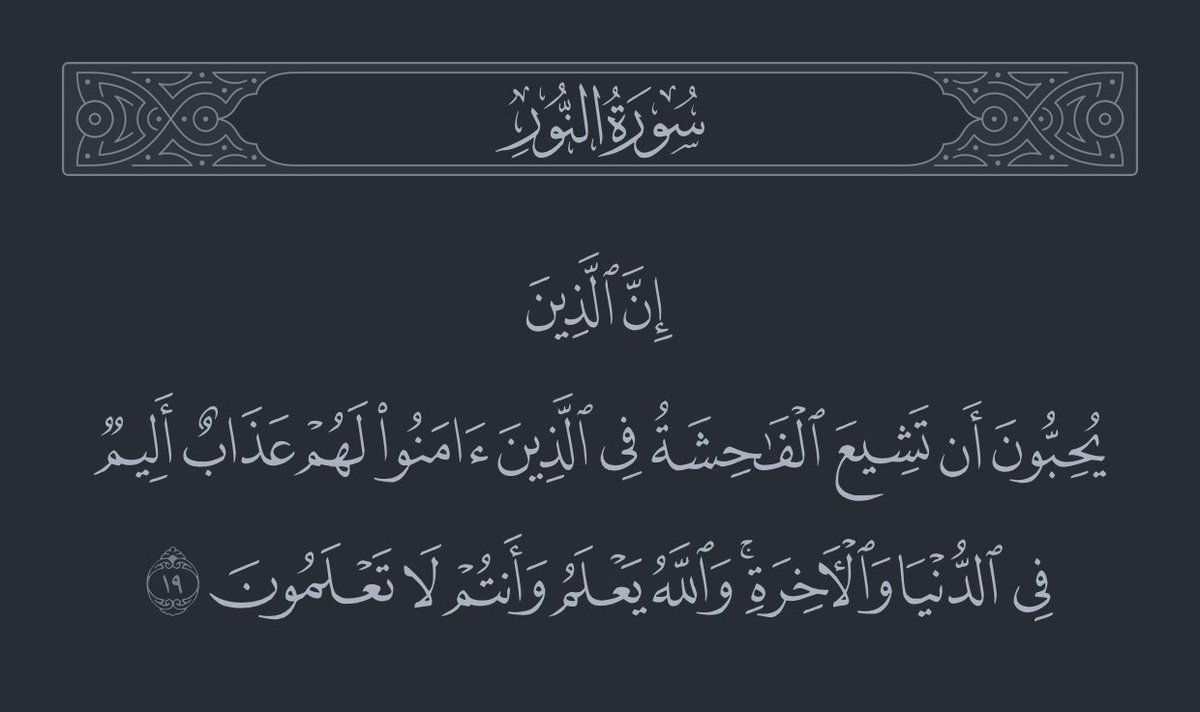 سُورَةُ النُّورِ
إِنَّ ٱلَّذِينَ
يُحِبُّونَ أَن تَشِيعَ ٱلْفَـٰحِشَةُ فِى ٱلَّذِينَ ءَامَنُوا۟ لَهُمْ عَذَابٌ أَلِيمٌ
فِى ٱلدُّنْيَا وَٱلْـَٔاخِرَةِ ۚ وَٱللَّهُ يَعْلَمُ وَأَنتُمْ لَا تَعْلَمُونَ ١٩